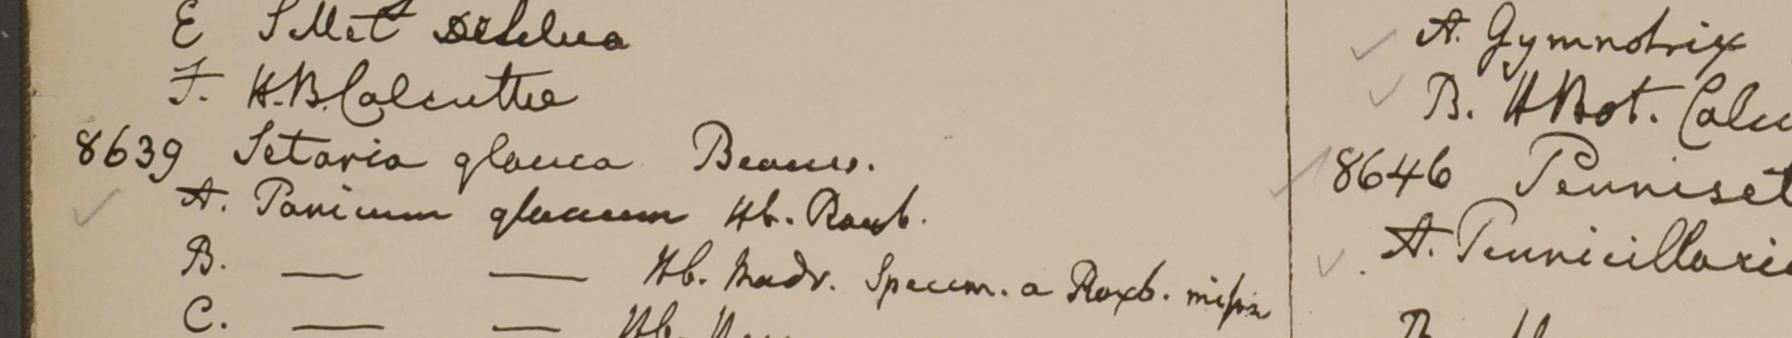 E Sillet
F. H.B. Calcuttae
8639 Setaria glauca Beauv.
A. Panicum glaucum Hb. Roxb.
B. — — Hb. Madr. Specim. a Roxb. missa
C. — — Hb.
A. Gymnotrix
B. H Bot. Calcu
8646 Penniset
A. Pennicillari